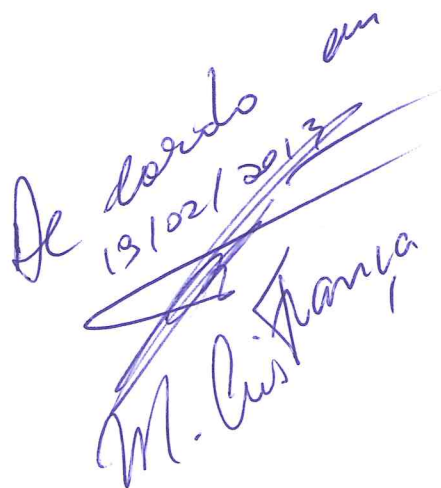 De acordo em
19/02/2013
M. Cris França